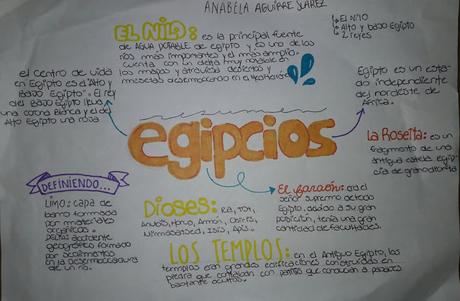 ANABELA AGUIRRE JUAREZ
EL NILO: es la principal fuente
de AGUA POTABLE de Egipto y es uno de los
ríos más importantes y el más amplio.
cuenta con un delta muy notable en
los mapas y atraviesa desiertos y
mesetas desembocando en el
↳ El Nilo
↳ Alto y bajo Egipto
↳ 2 reyes
el centro de vida
en Egipto es el "Alto y
bajo Egipto". El rey
del bajo Egipto lleva
una corona blanca y el del
Alto Egipto una roja
Egipto es un esta-
do independiente
del nordeste de
África.
resumen
egipcios
La Rosetta: es un
fragmento de una
antigua estela egip-
cia de granodiorita
DEFINIENDO...
Limo: capa de
barro formada
por materiales
orgánicos.
Delta: accidente
geográfico formado
por sedimentos
en la desembocadura
de un río.
Dioses: Ra, Tot,
Anubis, Horus, Amón, Osiris,
Isis, Apis.
El Faraón: era el
señor supremo de todo
Egipto, debido a su gran
posición, tenía una gran
cantidad de facultades.
LOS TEMPLOS: en el Antiguo Egipto, los
templos eran grandes edificaciones construidas en
piedra que contaban con patios que conducían a pasajes
bastante ocultos.